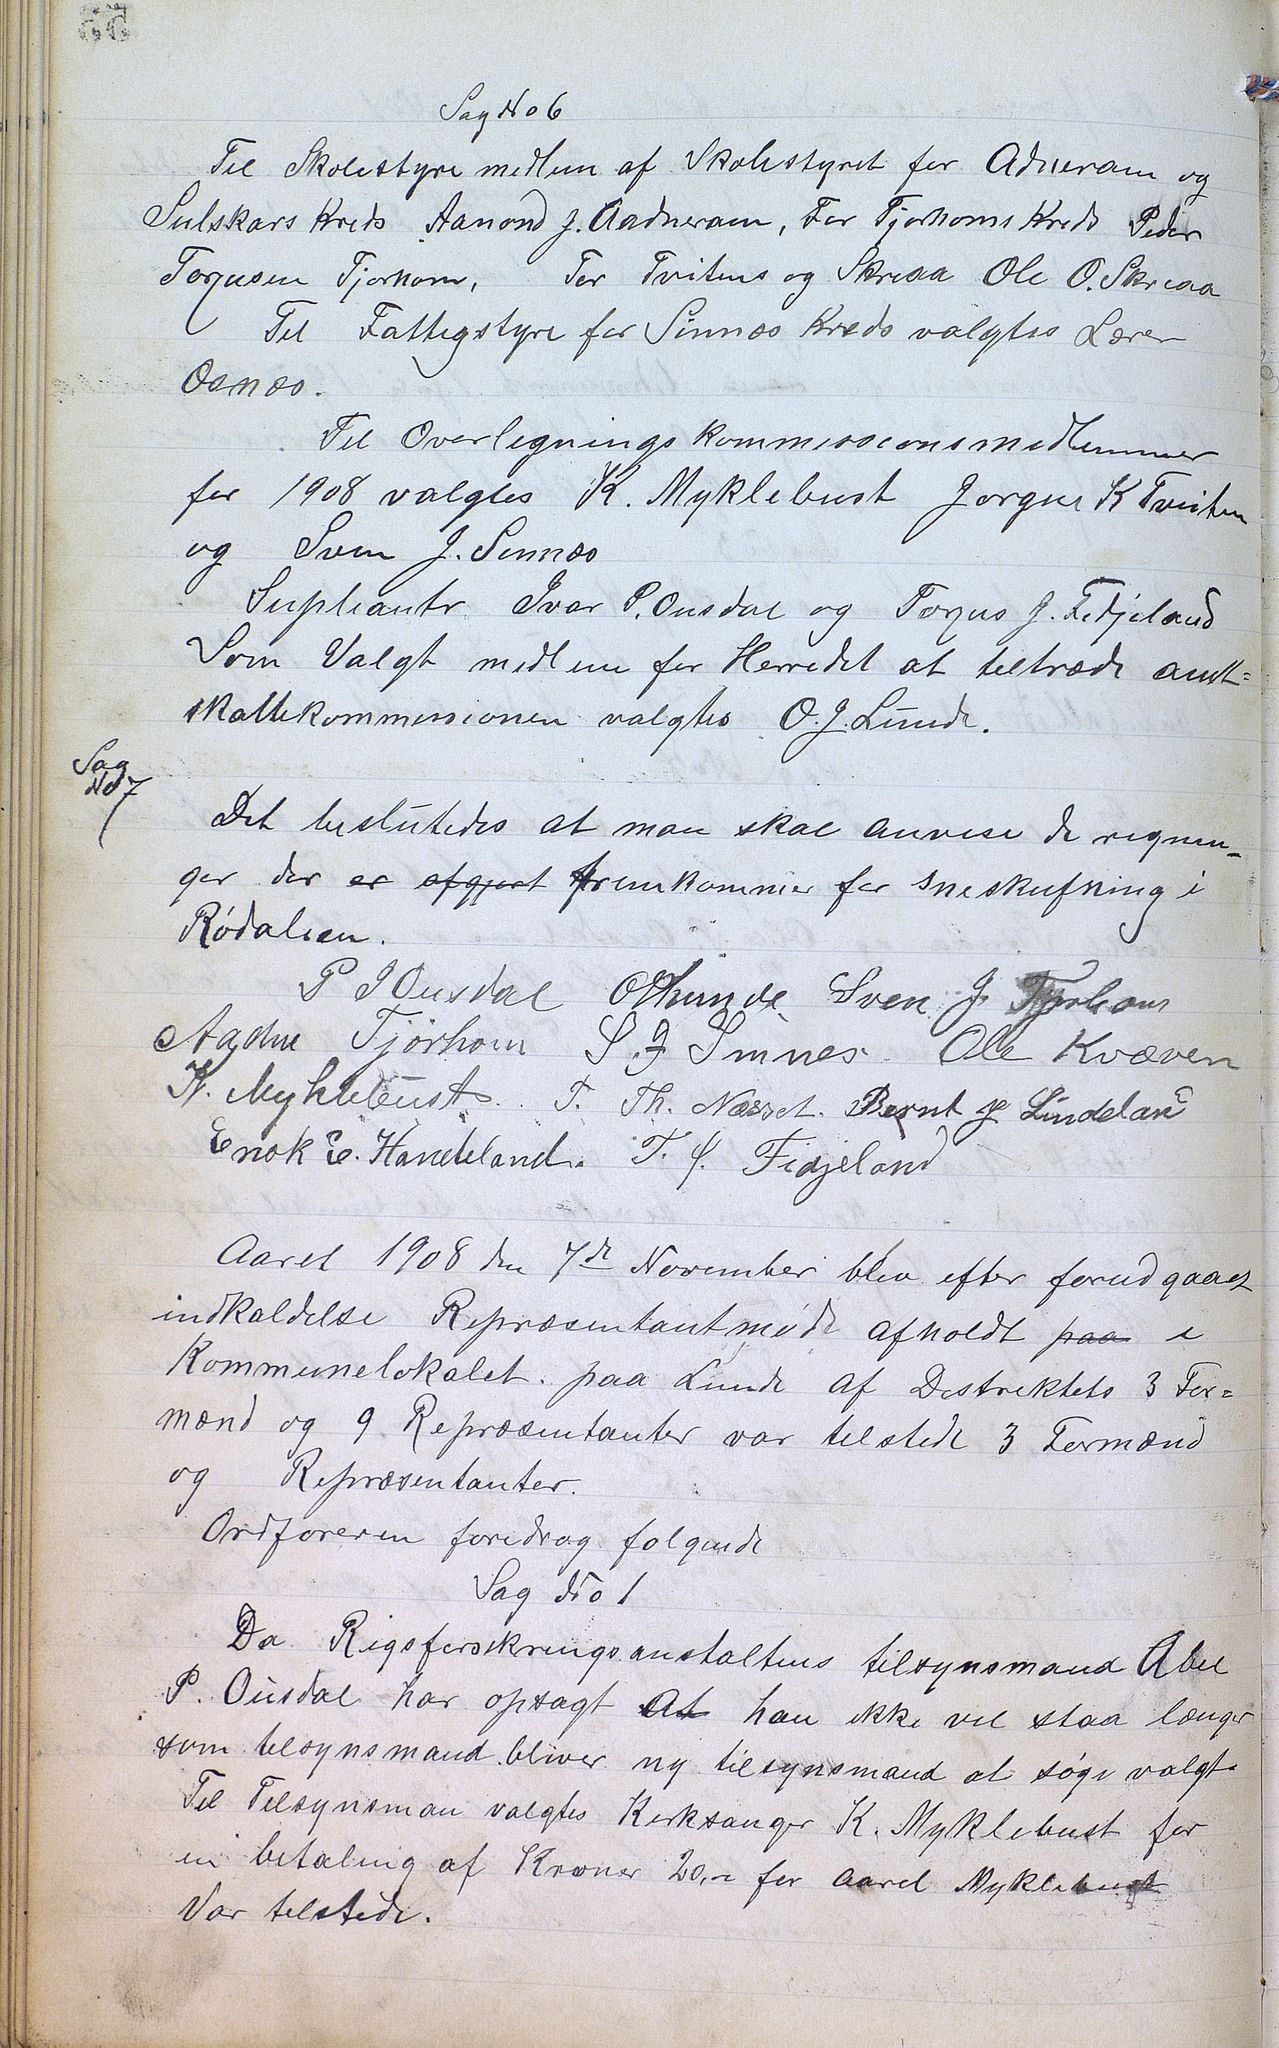 Sag No 6
Til Skolestyre medlem af Skolestyret for Adneram og
Sulskars Kreds Aanond J. Aadneram, For Tjorhoms Kreds Peder
Torjusen Tjorhom, For Tvitens og Skreaa Ole O. Skreaa
Til Fattigstyre for Sinnes Kreds valgtes Lærer
Osnæs.
Til Overlignings kommissionsmedlemmer
for 1908 valgtes K. Myklebust Jorgen K Tveiten
og Sven J. Sinnes
Supleantr Ivar P. Ousdal og Torjus J. Fidjeland
Som Valgt medlem for Herredet at tiltræde amt=
skattekommissionen valgtes O. J. Lunde.
Sag
No 7
Det beslutedes at man skal anvise de regnin=
ger der er afgjort fremkommer for sneskufning i
Rødalien.
P J Ousdal O Lunde Sven J. Tjorhom
Agdne Tjørhom S. J Sinnes. Ole Kvæven
K. Myklebust. T. Th. Nesset. Bernt J Lindeland
Enok E. Handeland. T. J. Fidjeland
Aaret 1908 den 7de November blev efter forudgaaet
indkaldelse Repræsentantmøde afholdt paa i
Kommunelokalet. paa Lunde af Distriktets 3 For=
mænd og 9 Repræsentanter var tilstede 3 Formænd
og Repræsentanter.
Ordforeren foredrog folgende
Sag No 1
Da Rigsforsikringsanstaltens tilsynsmand Abel
P. Ousdal har opsagt At han ikke vil staa længer
som tilsynsmand bliver ny tilsynsmand at søge valgt.
Til Tilsynsman valgtes Kirksanger K. Myklebust for
en betaling af Kroner 20,- for aaret Myklebust
Var tilstede.